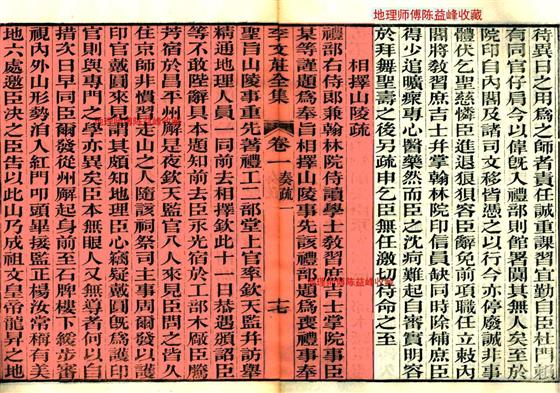 地理师傅陈益峰收藏
待異日之用爲者責任誠重課習宜勤自臣杜門賴
有同官仔肩今以偉旣入禮部則館署闃其無人矣至於
院印自內閣及諸司文移皆憑之以行今亦停廢誠非事
體伏乞聖慈憐臣進退狼狽容臣辭免前項職任立敕內
閣將教習庶吉士幷掌翰林院印信員缺同時除補庶臣
得少追曠瘝專心醫藥然而臣之沈疴難起自審實明容
於拜舞聖壽之後另疏申乞臣無任激切待命之至
地理师傅陈益峰收藏
相擇山陵疏
禮部右侍郎兼翰林院侍讀學士教習庶吉士掌院事臣
某等謹題爲奉旨相擇山陵事先該禮部題爲喪禮事奉
李文莊全集
卷一
奏疏一
十七
聖旨山陵事重先著禮工二部堂上官率欽天監幷訪舉
精通地理人員一同前去相擇欽此十一日恭遇頒詔臣
等不敢陛辭具本題知前去臣永光宿於工部木廠臣騰
芳宿於昌平州廨是夜欽天監官八人來見臣問之皆久
住京師非慣習走山之人隨該祠祭司主事周爾發以護
印官戴圓來見謂其頗知地理臣心竊疑戴圓旣爲護印
官則與專門之學亦異矣臣本無眼人又無導者何以自
措次日早同臣爾發從州廨起身前至石牌樓下緩步審
視內外山形勢洎入紅門叩頭畢接監正楊汝常梅有美
地六處邀臣決之臣告以此山乃成祖文皇帝龍昇之地
地理师傅陈益峰收藏